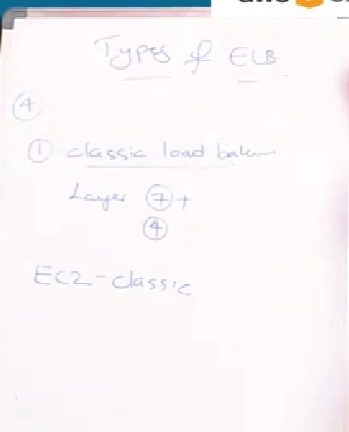 Types of ELB
④
① classic load
Layer ⑦ +
④
EC2-classic